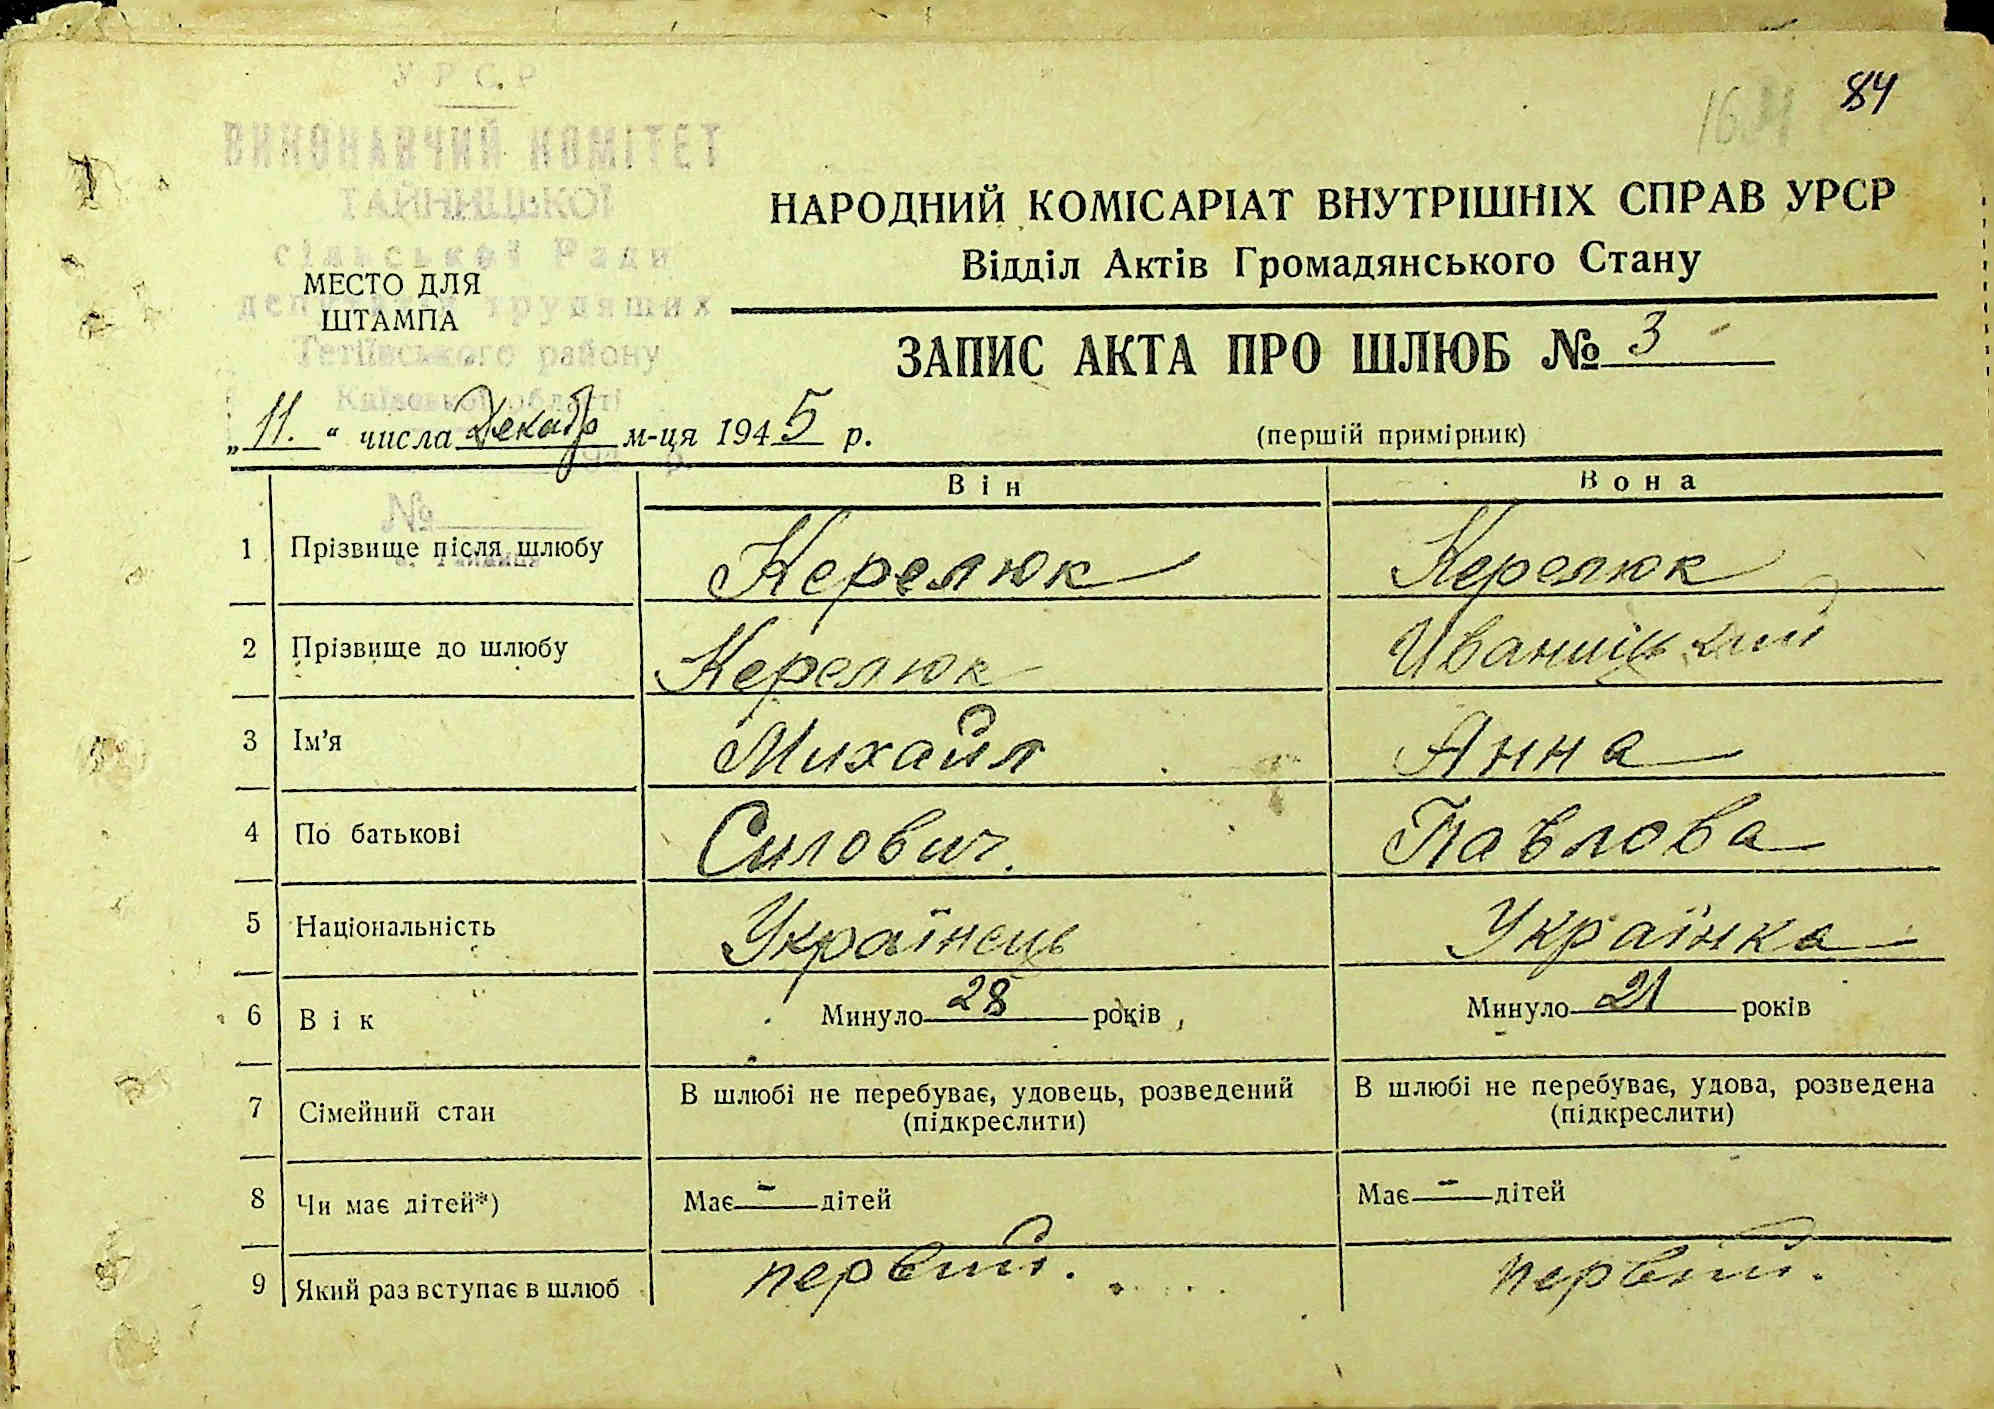 84
УРСР
ВИКОНАВЧИЙ КОМІТЕТ
ТАЙНИЦЬКОЇ
сільської Ради
депутатів трудящих
Тетіївського району
Київської області
МЕСТО ДЛЯ
ШТАМПА
НАРОДНИЙ КОМІСАРІАТ ВНУТРІШНІХ СПРАВ УРСР
Відділ Актів Громадянського Стану
ЗАПИС АКТА ПРО ШЛЮБ № 3
„11.“ числа Декабр м-ця 1945 р.
(першій примірник)
№
Він Вона
1 Прізвище після шлюбу Керелюк Керелюк
2 Прізвище до шлюбу Керелюк
3 Ім'я Михайл Анна
4 По батькові Силович. Павлова
5 Національність Українець Українка
6 Вік Минуло 28 років Минуло 21 років
7 Сімейний стан В шлюбі не перебуває, удовець, розведений В шлюбі не перебуває, удова, розведена
(підкреслити) (підкреслити)
8 Чи має дітей*) Має - дітей Має - дітей
9 Який раз вступає в шлюб первий. первий.